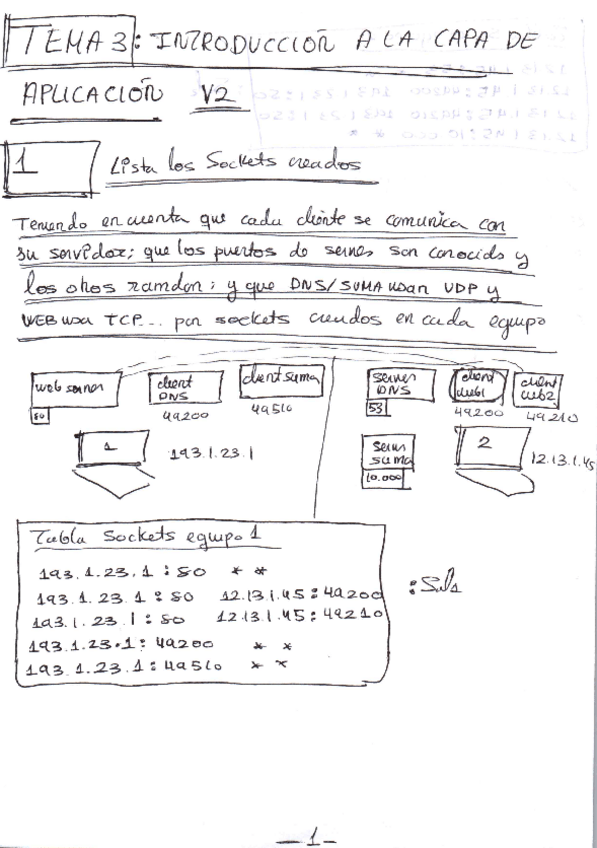 TEMA 3: INTRODUCCIÓN A LA CAPA DE
APLICACIÓN V2
1 Lista los Sockets creados
Teniendo en cuenta que cada cliente se comunica con
su servidor; que los puertos de serves son conocids y
los otros ramdon; y que DNS/SUMA usan UDP y
WEB usa TCP... pon sockets creados en cada equipo
web server
80
client DNS
49200
client suma
49510
1
193.1.23.1
server DNS
53
client web1
49200
client web2
49210
server suma
10.000
2
12.13.1.45
Tabla Sockets equipo 1
193.1.23.1:80 * *
193.1.23.1:80 12.13.1.45:49200
193.1.23.1:80 12.13.1.45:49210
193.1.23.1:49200 * *
193.1.23.1:49510 * *
-1-